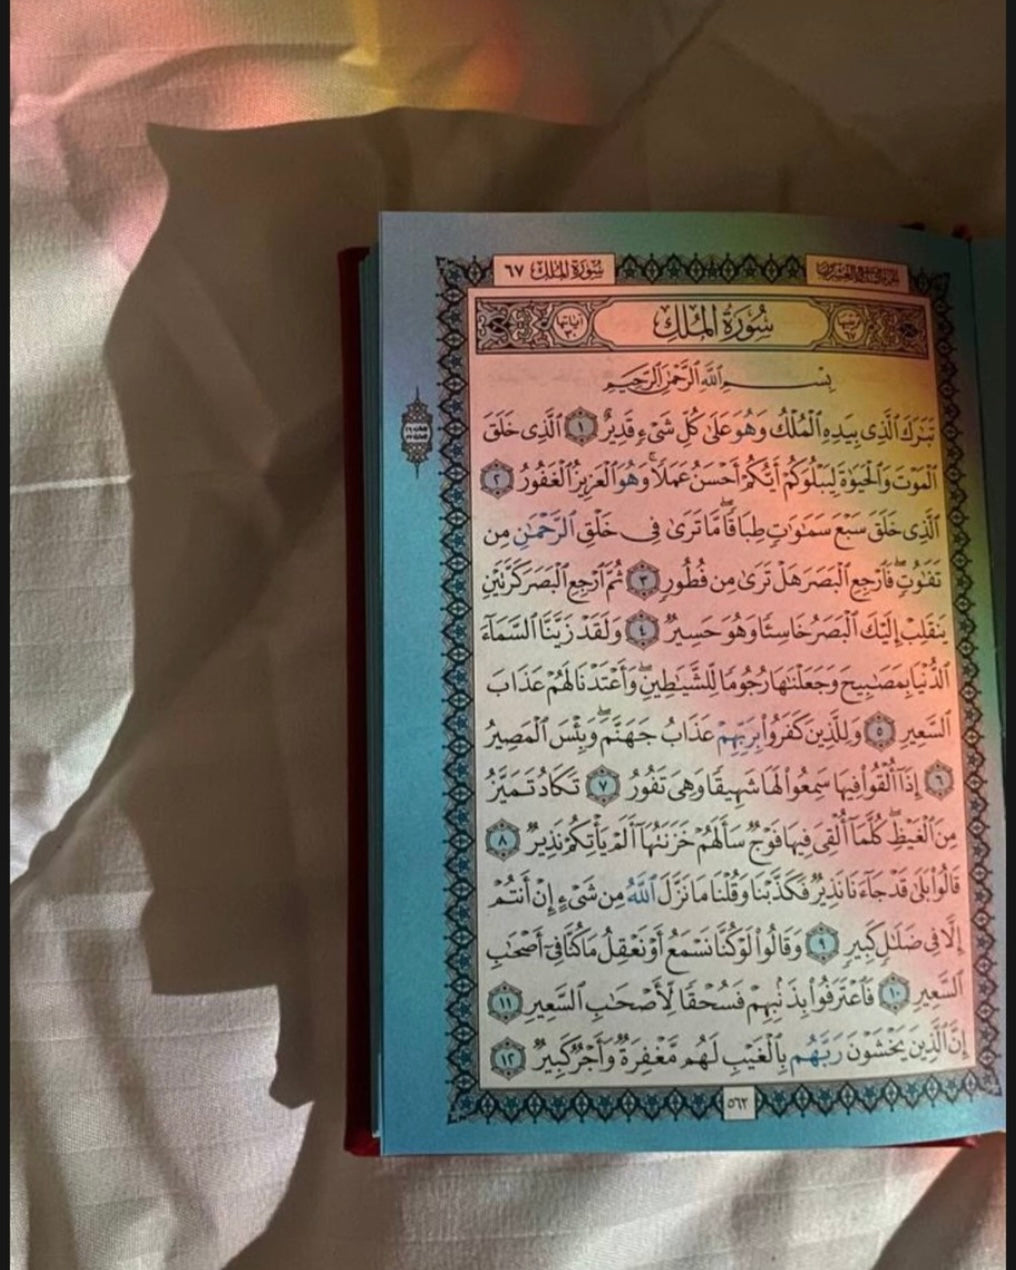 سورة الملك ٦٧
سُورَةُ المُلْكِ
آياتها ٣٠
بِسْمِ ٱللَّهِ ٱلرَّحْمَٰنِ ٱلرَّحِيمِ
تَبَٰرَكَ ٱلَّذِى بِيَدِهِ ٱلْمُلْكُ وَهُوَ عَلَىٰ كُلِّ شَىْءٍ قَدِيرٌ ١ ٱلَّذِى خَلَقَ
ٱلْمَوْتَ وَٱلْحَيَوٰةَ لِيَبْلُوَكُمْ أَيُّكُمْ أَحْسَنُ عَمَلًا ۚ وَهُوَ ٱلْعَزِيزُ ٱلْغَفُورُ ٢
ٱلَّذِى خَلَقَ سَبْعَ سَمَٰوَٰتٍ طِبَاقًا ۖ مَّا تَرَىٰ فِى خَلْقِ ٱلرَّحْمَٰنِ مِن
تَفَٰوُتٍ ۖ فَٱرْجِعِ ٱلْبَصَرَ هَلْ تَرَىٰ مِن فُطُورٍ ٣ ثُمَّ ٱرْجِعِ ٱلْبَصَرَ كَرَّتَيْنِ
يَنقَلِبْ إِلَيْكَ ٱلْبَصَرُ خَاسِئًا وَهُوَ حَسِيرٌ ٤ وَلَقَدْ زَيَّنَّا ٱلسَّمَآءَ
ٱلدُّنْيَا بِمَصَٰبِيحَ وَجَعَلْنَٰهَا رُجُومًا لِّلشَّيَٰطِينِ ۖ وَأَعْتَدْنَا لَهُمْ عَذَابَ
ٱلسَّعِيرِ ٥ وَلِلَّذِينَ كَفَرُوا۟ بِرَبِّهِمْ عَذَابُ جَهَنَّمَ ۖ وَبِئْسَ ٱلْمَصِيرُ
٦ إِذَآ أُلْقُوا۟ فِيهَا سَمِعُوا۟ لَهَا شَهِيقًا وَهِىَ تَفُورُ ٧ تَكَادُ تَمَيَّزُ
مِنَ ٱلْغَيْظِ ۖ كُلَّمَآ أُلْقِىَ فِيهَا فَوْجٌ سَأَلَهُمْ خَزَنَتُهَآ أَلَمْ يَأْتِكُمْ نَذِيرٌ ٨
قَالُوا۟ بَلَىٰ قَدْ جَآءَنَا نَذِيرٌ فَكَذَّبْنَا وَقُلْنَا مَا نَزَّلَ ٱللَّهُ مِن شَىْءٍ إِنْ أَنتُمْ
إِلَّا فِى ضَلَٰلٍ كَبِيرٍ ٩ وَقَالُوا۟ لَوْ كُنَّا نَسْمَعُ أَوْ نَعْقِلُ مَا كُنَّا فِىٓ أَصْحَٰبِ
ٱلسَّعِيرِ ١٠ فَٱعْتَرَفُوا۟ بِذَنۢبِهِمْ فَسُحْقًا لِّأَصْحَٰبِ ٱلسَّعِيرِ ١١
إِنَّ ٱلَّذِينَ يَخْشَوْنَ رَبَّهُم بِٱلْغَيْبِ لَهُم مَّغْفِرَةٌ وَأَجْرٌ كَبِيرٌ ١٢
٥٦٢